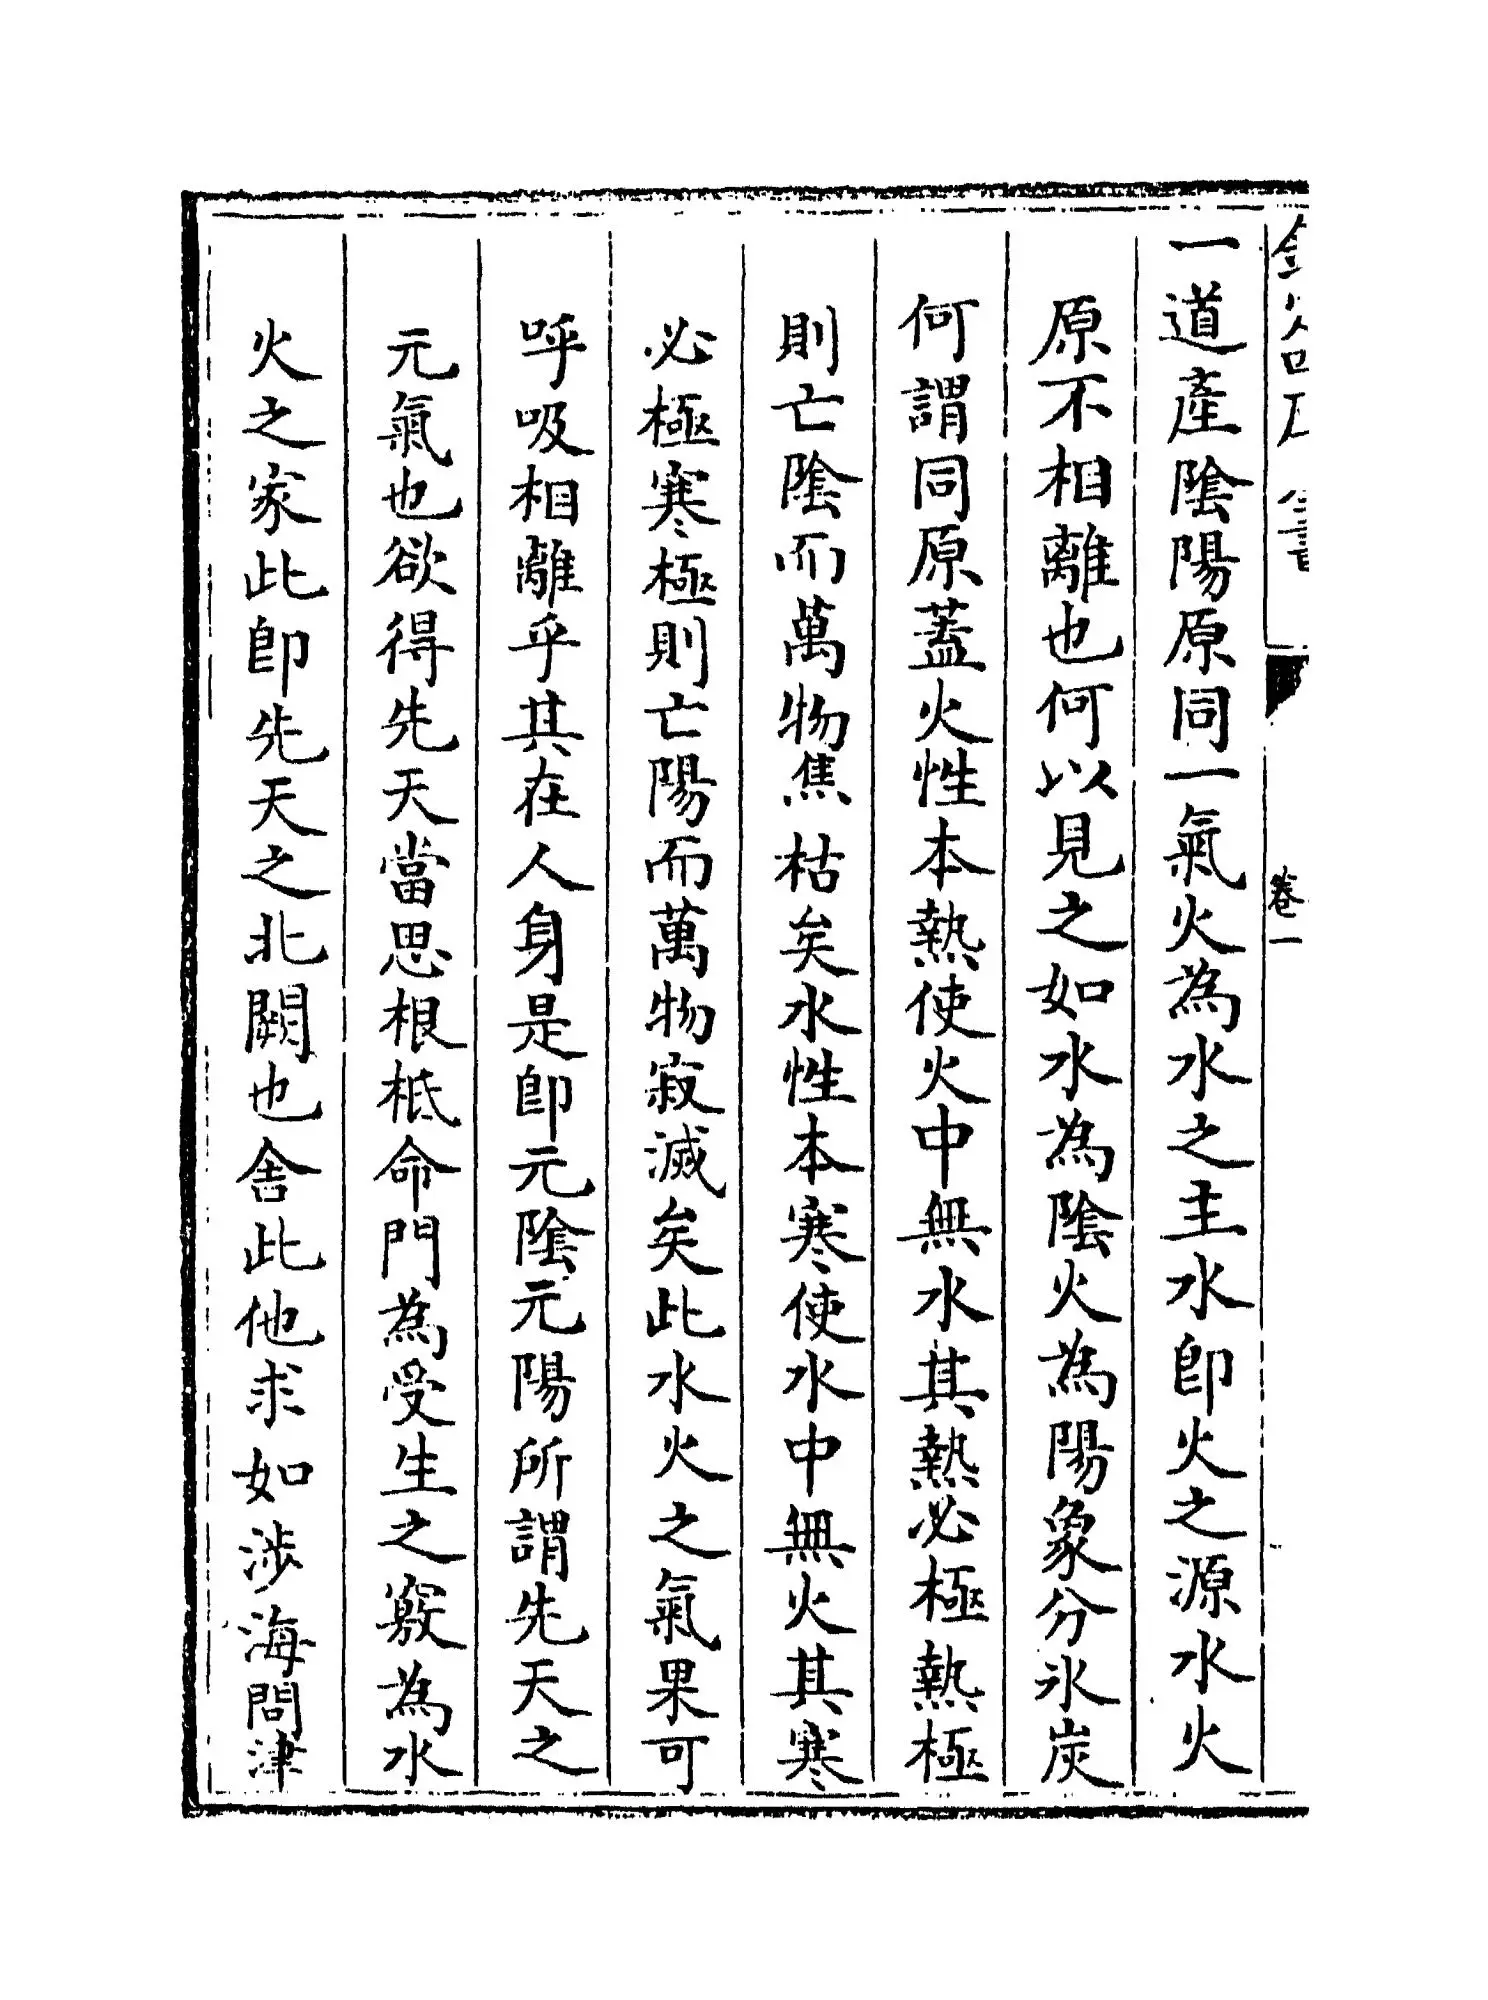 卷一
一道產陰陽原同一氣火為水之主水即火之源水火
原不相離也何以見之如水為陰火為陽象分氷炭
何謂同原蓋火性本熱使火中無水其熱必極熱極
則亡陰而萬物焦枯矣水性本寒使水中無火其寒
必極寒極則亡陽而萬物寂滅矣此水火之氣果可
呼吸相離乎其在人身是即元陰元陽所謂先天之
元氣也欲得先天當思根柢命門為受生之竅為水
火之家此即先天之北闕也舍此他求如涉海問津